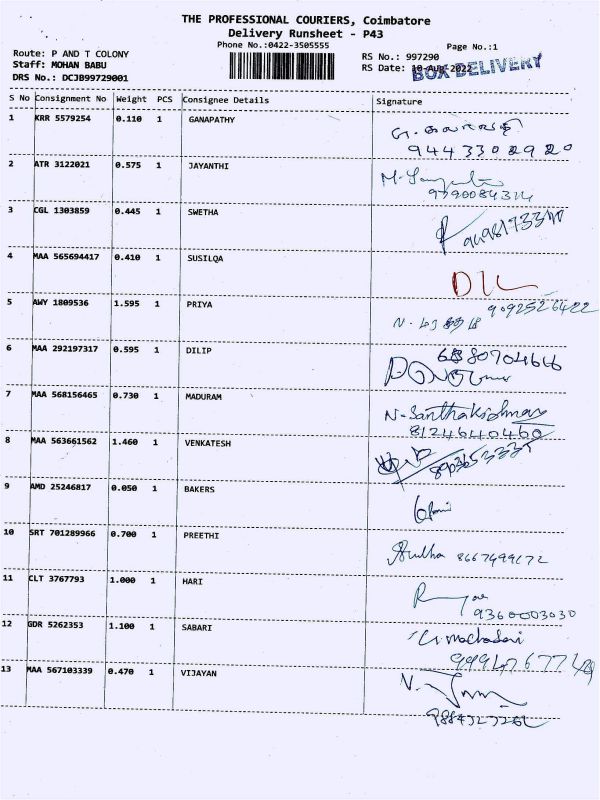 THE PROFESSIONAL COURIERS, Coimbatore
Delivery Runsheet - P43
Phone No.:0422-3505555
Page No.:1
Route: P AND T COLONY
Staff: MOHAN BABU
DRS No.: DCJB99729001
RS No.: 997290
RS Date: 10-Aug-2022
BOX DELIVERY
S No Consignment No Weight PCS Consignee Details Signature
1 KRR 5579254 0.110 1 GANAPATHY
9443302920
2 ATR 3122021 0.575 1 JAYANTHI
9790084314
3 CGL 1303859 0.445 1 SWETHA
4 MAA 565694417 0.410 1 SUSILQA
5 AWY 1809536 1.595 1 PRIYA
9092526422
6 MAA 292197317 0.595 1 DILIP
6380704666
7 MAA 568156465 0.730 1 MADURAM
N-Santhakrishnan
8124640460
8 MAA 563661562 1.460 1 VENKATESH
9 AMD 25246817 0.050 1 BAKERS
10 SRT 701289966 0.700 1 PREETHI
11 CLT 3767793 1.000 1 HARI
9360003030
12 GDR 5262353 1.100 1 SABARI
13 MAA 567103339 0.470 1 VIJAYAN